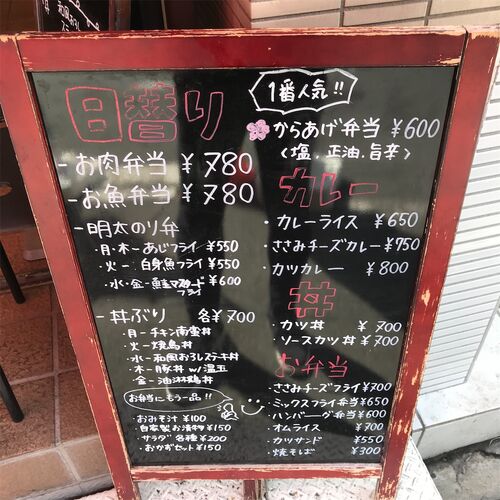 日替り
-お肉弁当 ¥780
-お魚弁当 ¥780
-明太のり弁
・月・木-あじフライ ¥550
・火-白身魚フライ ¥550
・水・金-鮭マスタードフライ ¥600
-丼ぶり 各¥700
・月-チキン南蛮丼
・火-焼鳥丼
・水-和風おろしステーキ丼
・木-豚丼 w/温玉
・金-油淋鶏丼
お弁当にもう一品!!
・おみそ汁 ¥100
・自家製お漬物 ¥150
・サラダ 各種 ¥200
・おかずセット ¥150
1番人気!!
からあげ弁当 ¥600
(塩,正油,旨辛)
カレー
・カレーライス ¥650
・ささみチーズカレー ¥750
・カツカレー ¥800
丼
・カツ丼 ¥700
・ソースカツ丼 ¥700
お弁当
・ささみチーズフライ ¥700
・ミックスフライ弁当 ¥650
・ハンバーグ弁当 ¥600
・オムライス ¥700
・カツサンド ¥550
・焼そば ¥300